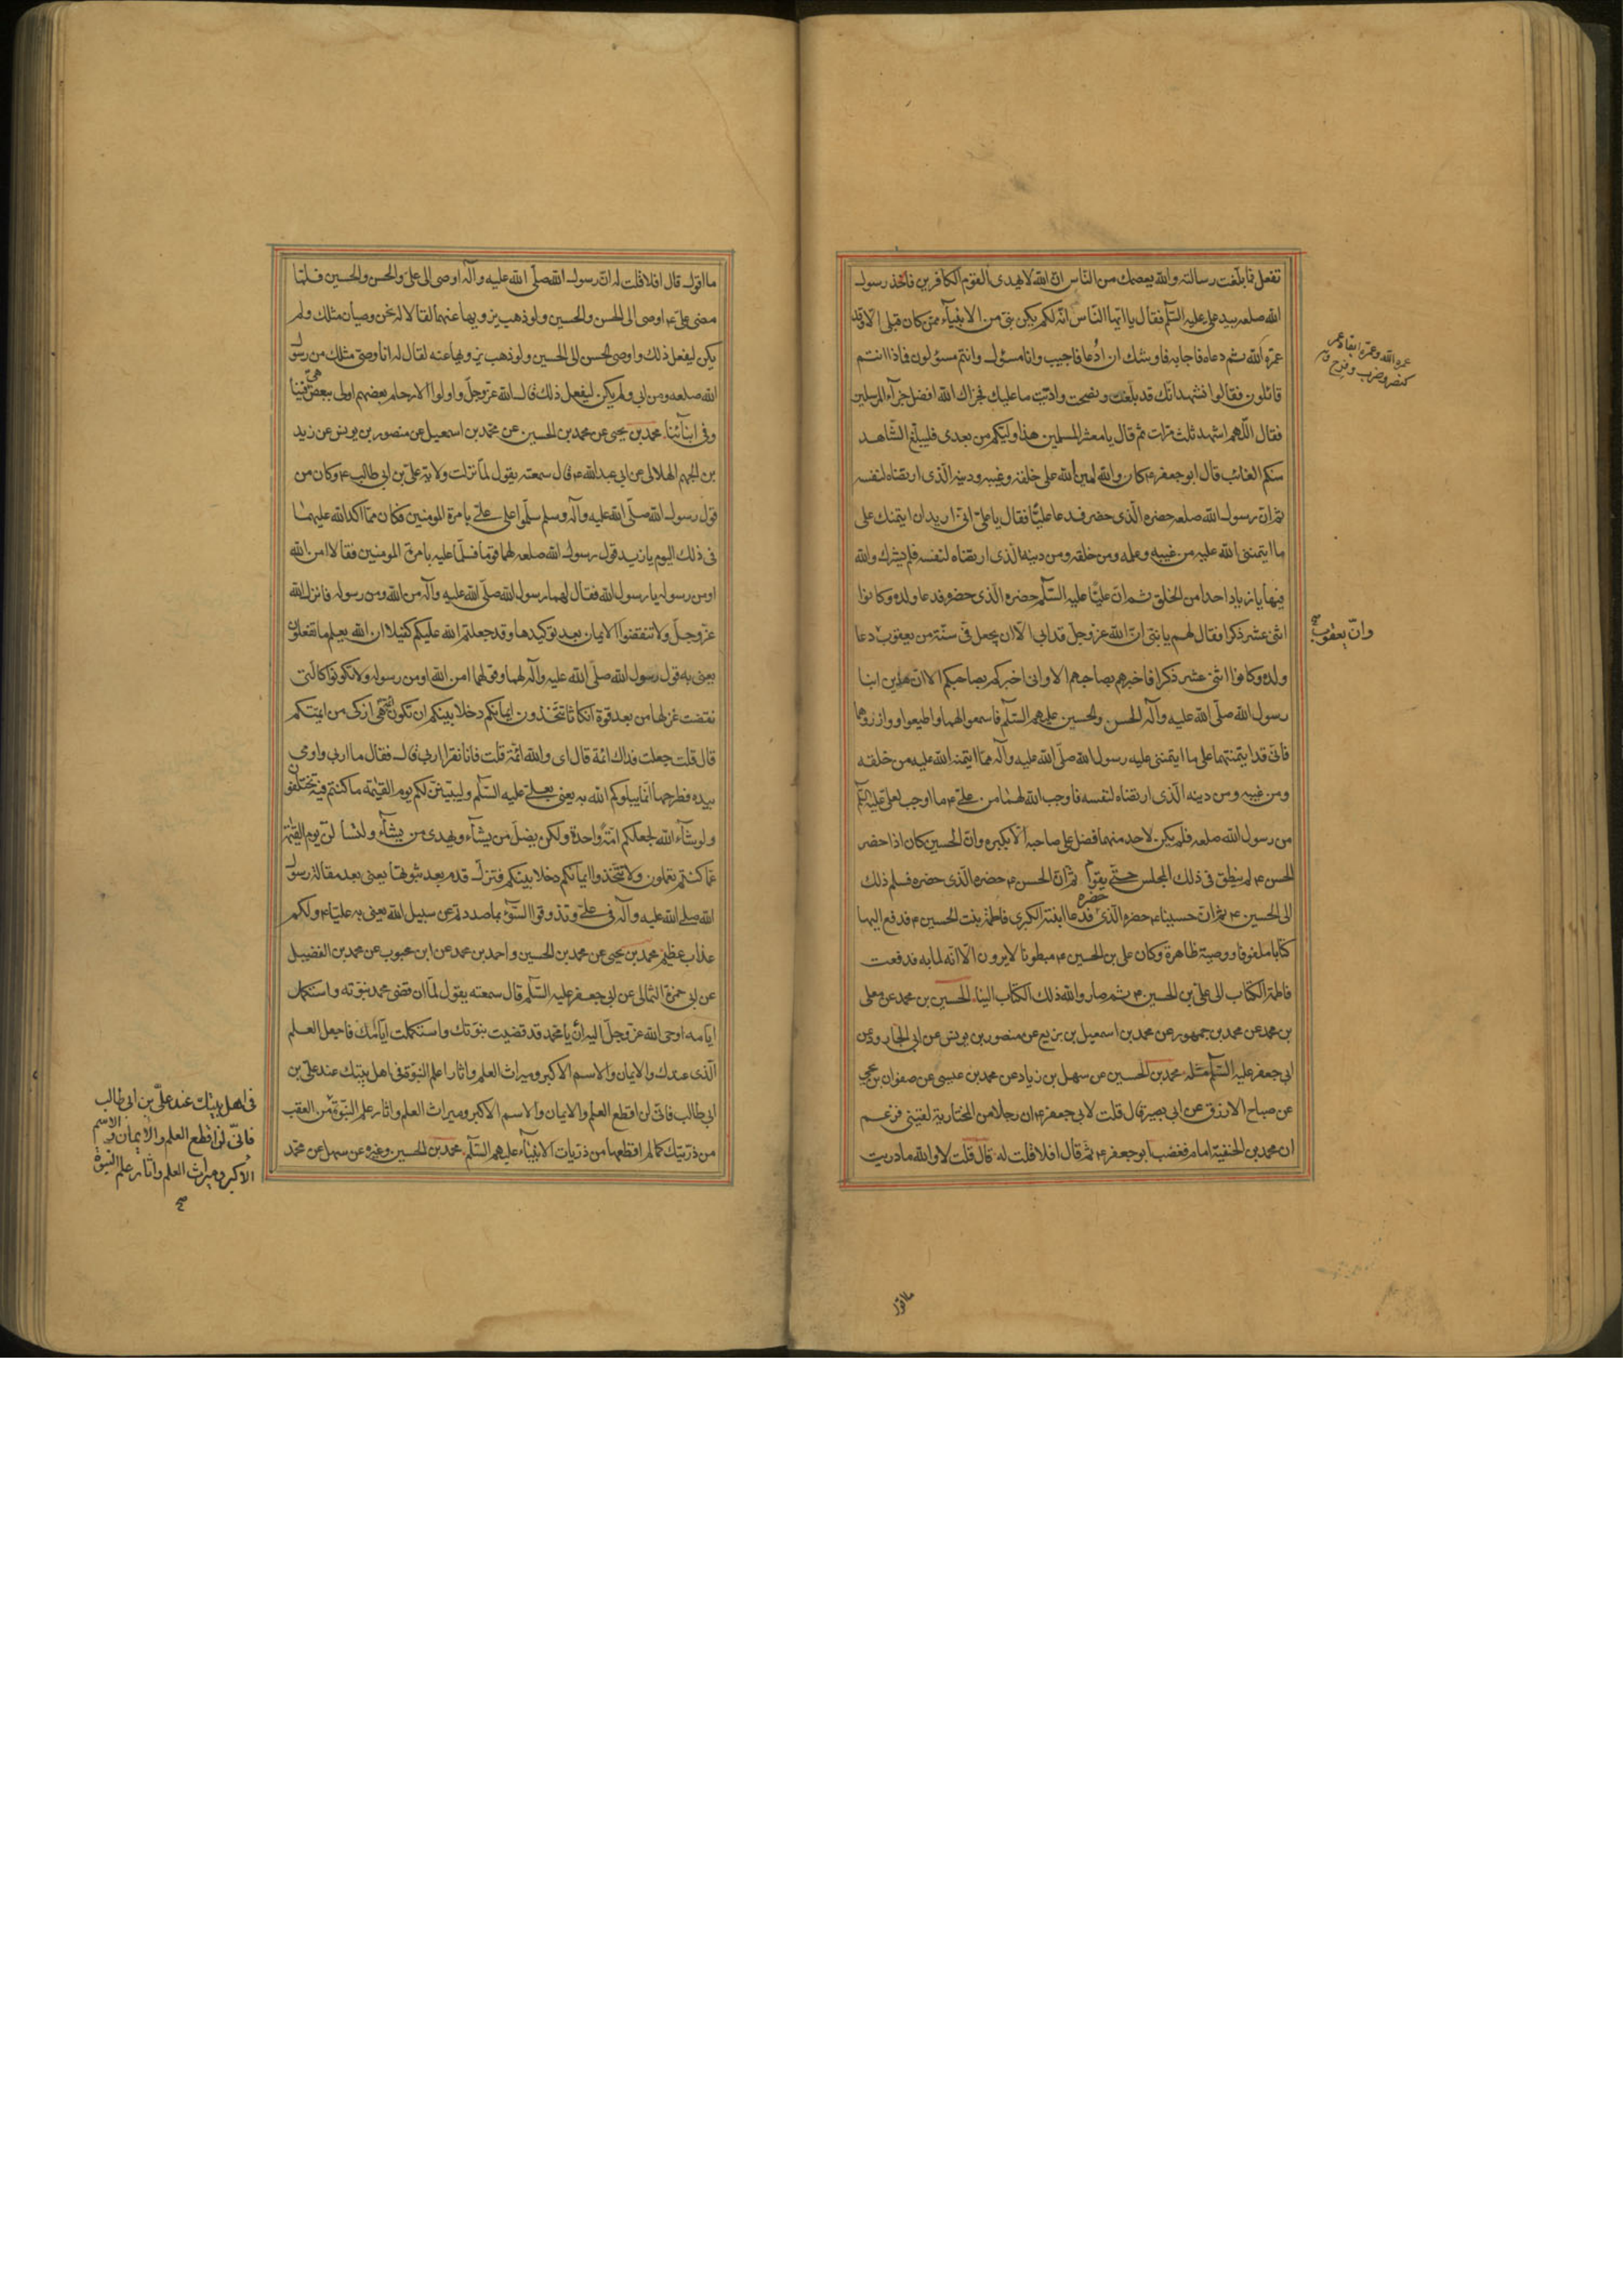 تفعل فما بلّغت رسالته والله يعصمك من الناس انّ الله لا يهدى القوم الكافرين فاخذ رسول
الله صلعم بيد علىّ عليه السّلم فقال يا ايّها النّاس انّه لم يكن نبىّ من الانبيآء ممّن كان قبلى الّا وقد
عمّره الله ثم دعاه فاجابه فاوشك ان اُدعا فاجيب وانا مسئول وانتم مسئولون فماذا انتم
قائلون فقالوا نشهد انّك قد بلّغت ونصحت وادّيت ما عليك فجزاك الله افضل جزآء المرسلين
فقال اللّهم اشهد ثلث مرّات ثم قال يا معشر المسلمين هذا وليّكم من بعدى فليبلّغ الشّاهد
منكم الغائب قال ابو جعفر ع كان والله امين الله على خلقه وغيبه ودينه الّذى ارتضاه لنفسه
ثم انّ رسول الله صلعم حضره الّذى حضر فدعا عليّا فقال يا علىّ انّى اريد ان ايتمنك على
ما ايتمننى الله عليه من غيبه وعلمه ومن خلقه ومن دينه الّذى ارتضاه لنفسه فلم يشرك والله
فيها يا زياد احدا من الخلق ثم انّ عليّا عليه السّلم حضره الّذى حضره فدعا ولده وكانوا
اثنى عشر ذكرا فقال لهم يا بنىّ انّ الله عزّ وجلّ قد ابى الّا ان يجعل فىّ سنّة من يعقوب دعا
ولده وكانوا اثنى عشر ذكرا فاخبرهم بصاحبهم الا وانى اخبركم بصاحبكم الا ان هذين ابنا
رسول الله صلّى الله عليه وآله الحسن والحسين عليهم السّلم فاسمعوا لهما واطيعوا ووازروهما
فانّى قد ايتمنتهما على ما ايتمننى عليه رسول الله صلّى الله عليه وآله ممّا ايتمنه الله عليه من خلقه
ومن غيبه ومن دينه الّذى ارتضاه لنفسه فاوجب الله لهما من علىّ ع ما اوجب لعلىّ عليه السّلم
من رسول الله صلعم فلم يكن لاحد منهما فضل على صاحبه الّا بكبره وانّ الحسين كان اذا حضر
الحسن ع لم ينطق فى ذلك المجلس حتّى يقوم ثم انّ الحسن ع حضره الّذى حضره فسلم ذلك
الى الحسين ع ثم انّ حسينا ع حضره الّذى حضره فدعا ابنته الكبرى فاطمة بنت الحسين ع فدفع اليها
كتابا ملفوفا ووصية ظاهرة وكان على بن الحسين ع مبطونا لا يرون الّا انّه لما به فدفعت
فاطمة الكتاب الى علىّ بن الحسين ع ثم صار والله ذلك الكتاب الينا الحسين بن محمد عن معلى
بن محمد عن محمد بن جمهور عن محمد بن اسمعيل بن بزيع عن منصور بن يونس عن ابى الجارود عن
ابى جعفر عليه السّلم مثله محمد بن الحسين عن سهل بن زياد عن محمد بن عيسى عن صفوان بن يحيى
عن صباح الازرق عن ابى بصير قال قلت لابى جعفر ع ان رجلا من المختارية لقينى فزعم
ان محمد بن الحنفية امام فغضب ابو جعفر ع ثم قال افلا قلت له قال قلت لا والله ما دريت
وانّ يعقوب صح
ما اقول
ما اقول قال افلا قلت له انّ رسول الله صلّى الله عليه وآله اوصى الى علىّ والحسن والحسين فلمّا
مضى علىّ ع اوصى الى الحسن والحسين ولو ذهب يزويها عنهما لقالا له نحن وصيان مثلك ولم
يكن ليفعل ذلك واوصى الحسن الى الحسين ولو ذهب يزويها عنه لقال له انا وصىّ مثلك من رسول
الله صلعم ومن ابى ولم يكن ليفعل ذلك قال الله عزّ وجلّ واولوا الارحام بعضهم اولى ببعض هى فينا
وفى ابنآئنا محمد بن يحيى عن محمد بن الحسين عن محمّد بن اسمعيل عن منصور بن يونس عن زيد
بن الجهم الهلالى عن ابى عبد الله ع قال سمعته يقول لمّا نزلت ولاية علىّ بن ابى طالب ع وكان من
قول رسول الله صلّى الله عليه وآله وسلم سلّموا على علىّ بامرة المومنين فكان ممّا اكد الله عليهما
فى ذلك اليوم يا زيد قول رسول الله صلعم لهما قوما فسلّما عليه بامرة المومنين فقالا امن الله
او من رسوله يا رسول الله فقال لهما رسول الله صلّى الله عليه وآله من الله ومن رسوله فانزل الله
عزّ وجلّ ولا تنقضوا الايمان بعد توكيدها وقد جعلتم الله عليكم كفيلا ان الله يعلم ما تفعلون
يعنى به قول رسول الله صلّى الله عليه وآله لهما وقولهما امن الله او من رسوله ولا تكونوا كالّتى
نقضت غزلها من بعد قوة انكاثا تتّخذون ايمانكم دخلا بينكم ان تكون ائمّة هى ازكى من ائمتكم
قال قلت جعلت فداك ائمة قال اى والله ائمّة قلت فانا نقرا اربى قال فقال ما اربى واومى
بيده فطرحها انّما يبلوكم الله به يعنى بعلىّ عليه السّلم وليبيّننّ لكم يوم القيٰمة ما كنتم فيه تختلفون
ولو شآء الله لجعلكم امّة واحدة ولكن يضلّ من يشآء ويهدى من يشآء ولتسألنّ يوم القيٰمة
عمّا كنتم تعملون ولا تتّخذوا ايمانكم دخلا بينكم فتزلّ قدم بعد ثبوتها يعنى بعد مقالة رسول
الله صلّى الله عليه وآله فى علىّ وتذوقوا السّوٓء بما صددتم عن سبيل الله يعنى به عليّا ع ولكم
عذاب عظيم محمد بن يحيى عن محمد بن الحسين واحمد بن محمد عن ابن محبوب عن محمد بن الفضيل
عن ابى حمزة الثمالى عن ابى جعفر عليه السّلم قال سمعته يقول لمّا ان قضى محمد نبوّته واستكمل
ايّامه اوحى الله عزّ وجلّ اليه انّ يا محمّد قد قضيت نبوّتك واستكملت ايّامك فاجعل العلم
الّذى عندك والايمان والاسم الاكبر وميراث العلم واثار علم النبوّة فى اهل بيتك عند علىّ بن
ابى طالب فانّى لن اقطع العلم والايمان والاسم الاكبر وميراث العلم واثار علم النّبوّة من العقب
من ذرّيتك كما لم اقطعها من ذرّيات الانبيآء عليهم السّلم محمد بن الحسين وغيره عن سهل عن محمّد
فى اهل بيتك عند علىّ بن ابى طالب
فانّى لن اقطع العلم والايمان والاسم
الاكبر وميراث العلم واثار علم النبوة
صح